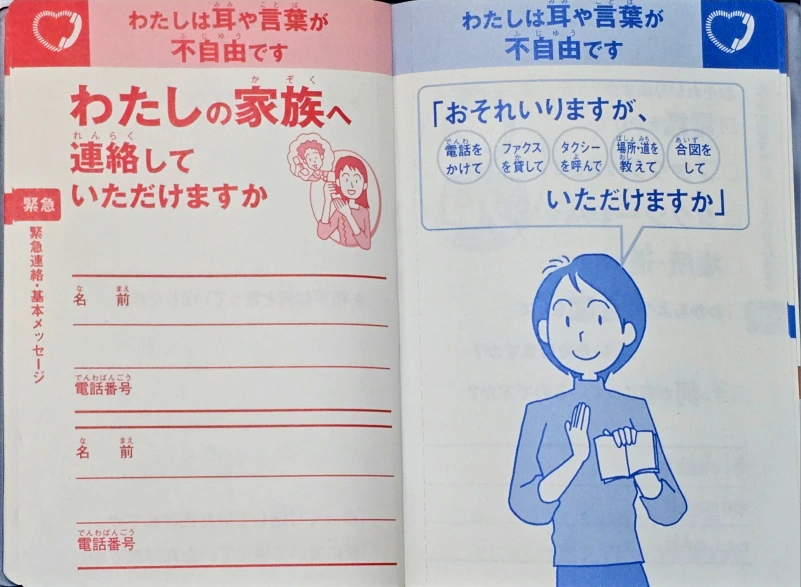 わたしは耳や言葉が
不自由です
わたしの家族へ
連絡して
いただけますか
緊急
緊急連絡・基本メッセージ
名前
電話番号
名前
電話番号
わたしは耳や言葉が
不自由です
「おそれいりますが、
電話を
かけて
ファクス
を貸して
タクシー
を呼んで
場所・道を
教えて
合図を
して
いただけますか」